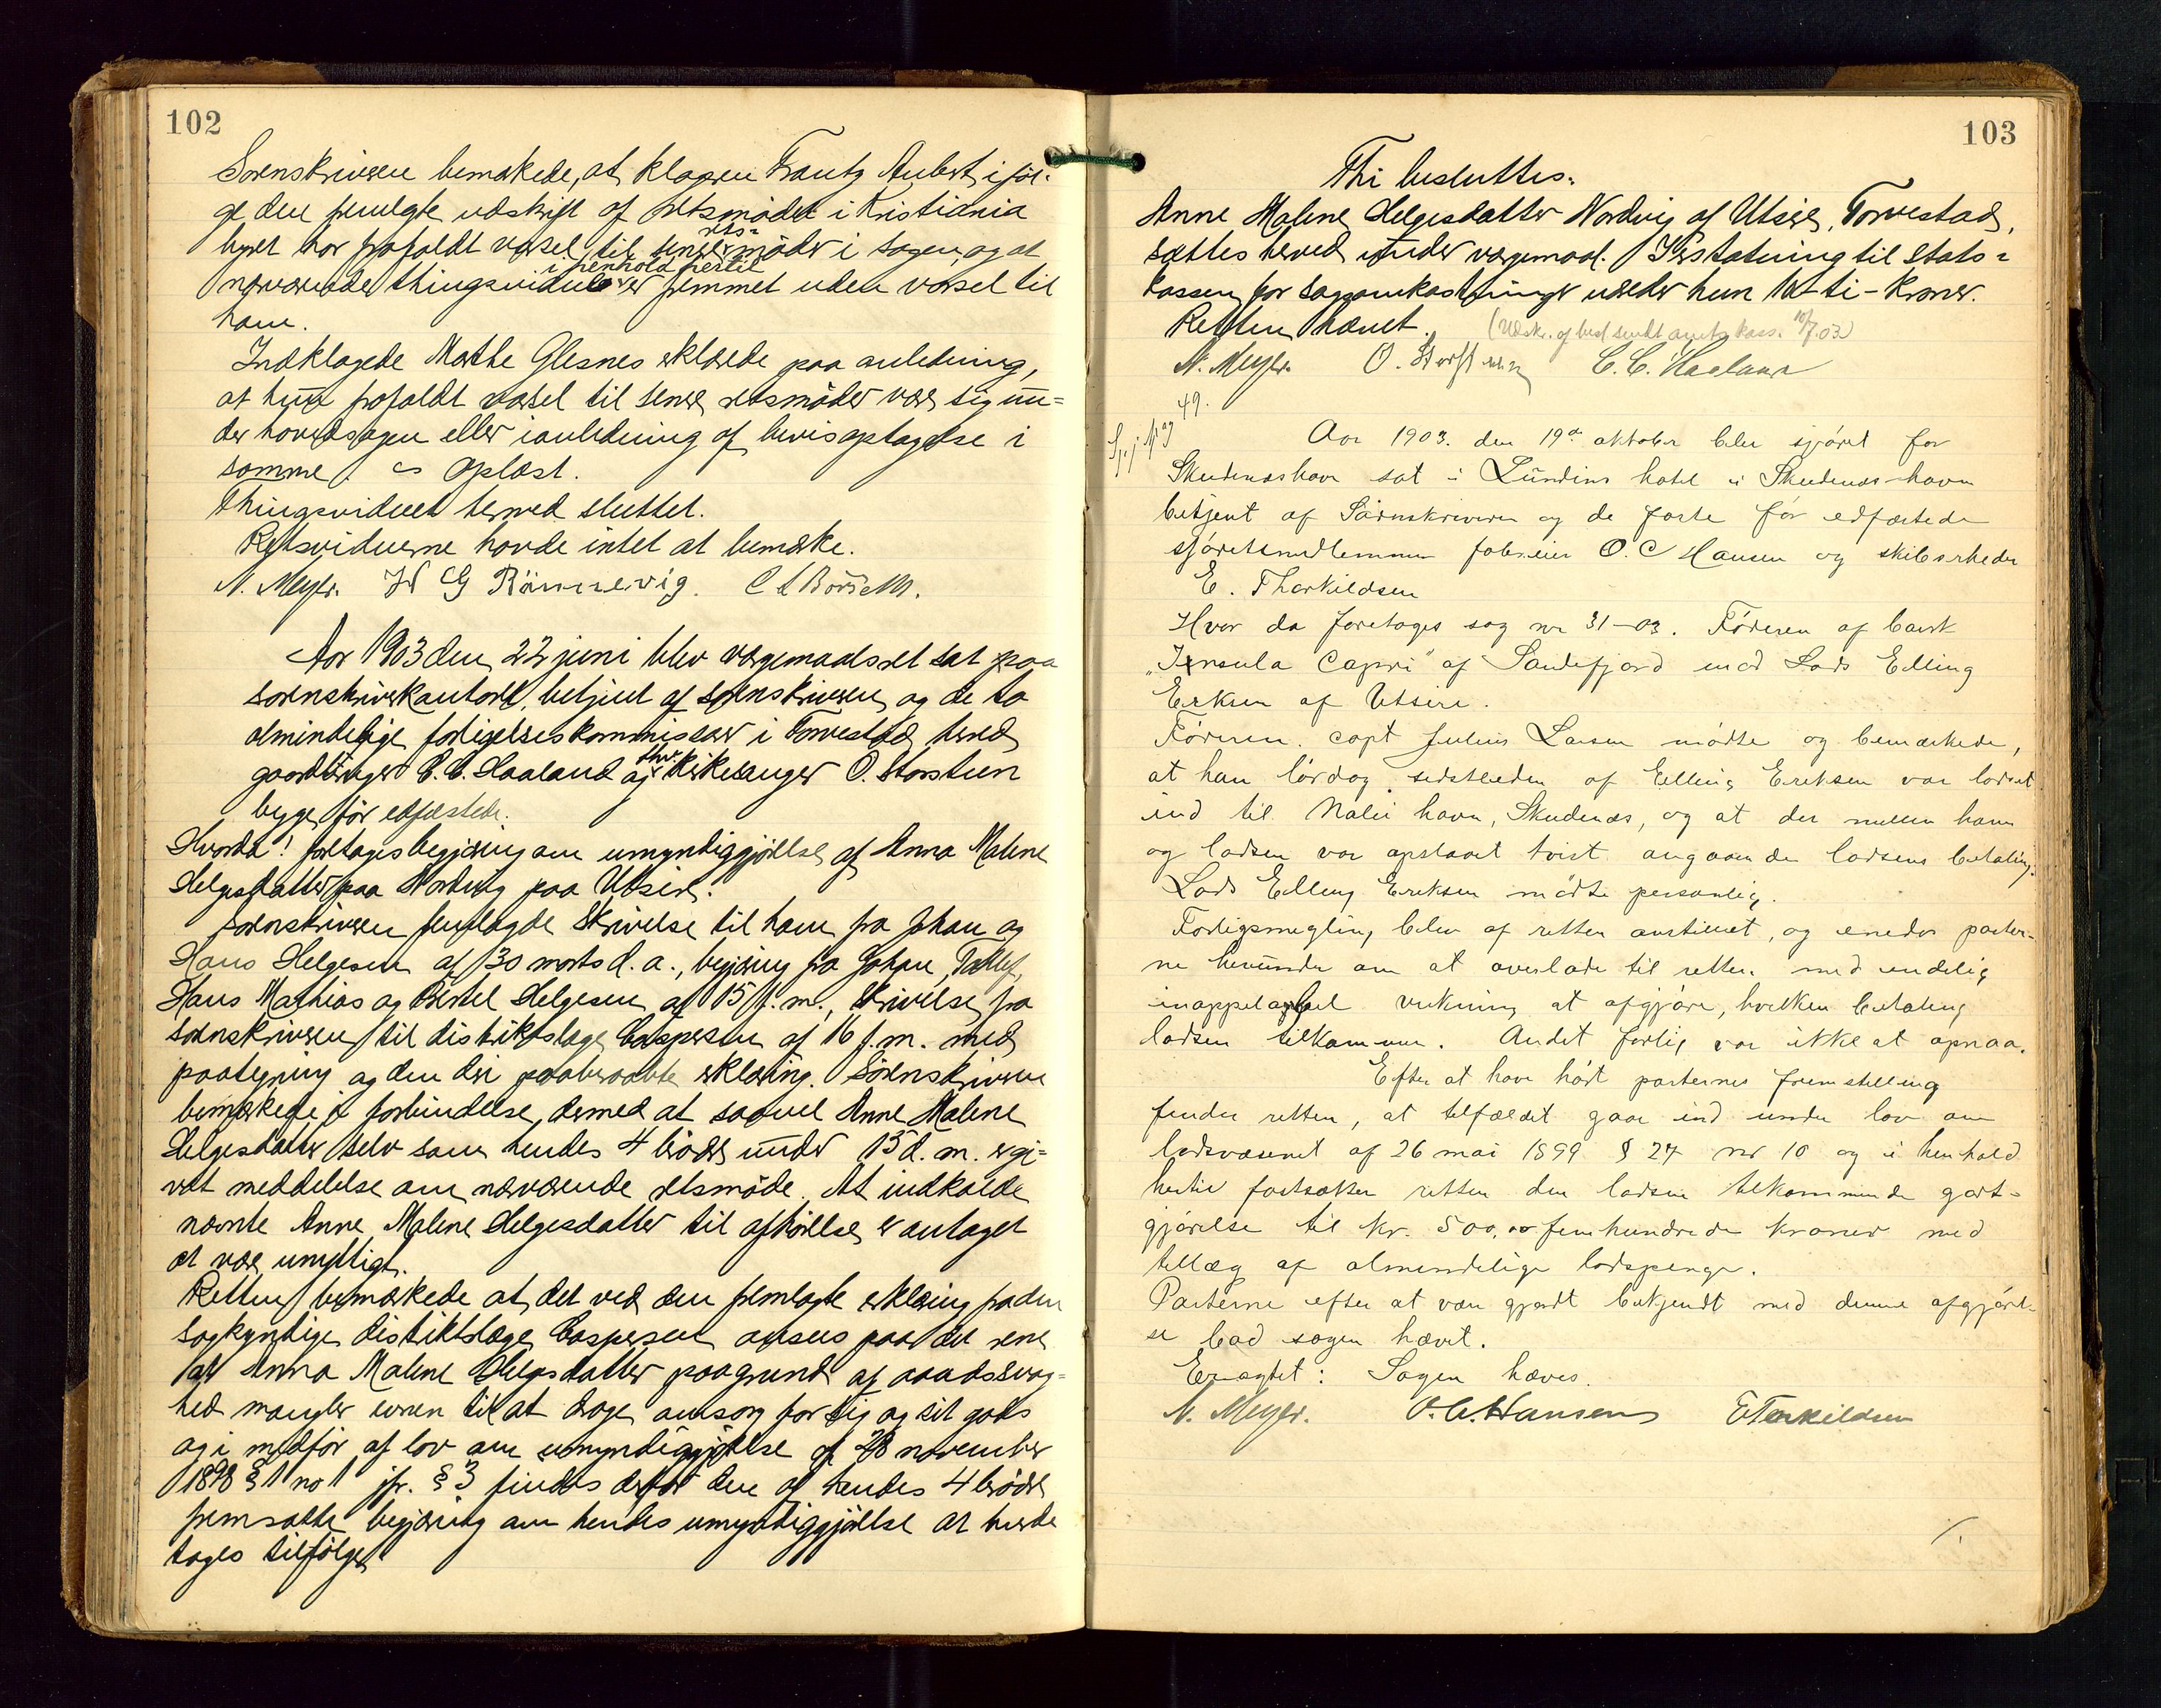 102
Sorenskriveren bemærkede, at klageren Frantz Aubert iføl-
ge den fremlagte udskrift af retsmødet i Kristiania
byret har frafaldt varsel til senere rets-møder i sagen, og at
nærværende thingsvidne i henhold hertil er fremmet uden varsel til
ham.
Indklagede Marthe Glesnes erklærede paa anledning,
at hun frafaldt varsel til senere retsmøder være sig un=
der hovedsagen eller i anledning af bevisoptagelse i
samme. Oplæst.
Thingsvidnet hermed sluttet.
Retsvidnerne havde intet at bemærke.
N. Meyer. H G Rönnevig.
Aar 1903 den 22 juni blev værgemaalsret sat paa
sorenskriverkontoret, betjent af sorenskriveren og de to
almindelige forligelseskommissærer i Torvestad herred
gaardbruger C. C. Haaland og fhv. kirkesanger O. Storsteen
begge før edfæstede.
Hvorda! foretages begjæring om umyndiggjørelse af Anna Malene
Helgesdatter paa Nordvig paa Utsire.
Sorenskriveren fremlagde skrivelse til ham fra Johan og
Hans Helgesen af 30 marts d. a., begjæring fra Johan, Tollef,
Hans Mathias og Bertel Helgesen af 15 f. m., skrivelse fra
sorenskriveren til distriktslæge Caspersen af 16 f. m. med
paategning og den deri paaberaabte erklæring. Sorenskriveren
bemærkede i forbindelse dermed at saavel Anne Malene
Helgesdatter selv som hendes 4 brødre under 15 d. m. er gi=
vet meddelelse om nærværende retsmøde. At indkalde
nævnte Anne Malene Helgesdatter til afhørelse er antaget
at være unyttigt.
Retten bemærkede at det ved den fremlagte erklæring fra den
sagkyndige distriktslæge Caspersen ansees paa det rene
at Anna Malene Helgesdatter paa grund af aandssvag=
hed mangler evnen til at drage omsorg for sig og sit gods
og i medfør af lov om umyndiggjørelse af 28 november
1898 § 1 no 1 jfr. § 3 findes derfor den af hendes 4 brødre
fremsatte begjæring om hendes umyndiggjørelse at burde
tages tilfølge.
103
Thi besluttes:
Anne Malene Helgesdatter Nordvig af Utsire, Torvestad,
sættes herved under værgemaal. I erstatning til Stats=
kassen for sagsomkostninger udreder hun 10 - ti - kroner.
Retten hævet. (Udskr. af besl sendt amtskass. 10/7.03)
N. Meyer. O. Storsteen C. C. Haaland
49.
Aar 1903. den 19de oktober blev sjøret for
Skudeneshavn sat i Lundins hotel i Skudenes-havn
betjent af Sorenskriveren og de faste før edfæstede
sjøretsmedlemmer fabr.eier O. C Hansen og skibsrheder
E. Tharkildsen
Hvor da foretages sag nr 31-03. Føreren af bark
"Insula Capri" af Sandefjord mod Lods Elling
Eriksen af Utsire.
Føreren. capt Julius Larsen mødte og bemærkede,
at han lørdag sidstleden af Elling Eriksen var lodset
ind til Malei havn, Skudenes, og at der mellem ham
og lodsen var opstaaet tvist angaaende lodsens betaling.
Lods Elling Eriksen mødte personlig.
Forligsmegling blev af retten anstillet, og enedes parter-
ne herunder om at overlade til retten med endelig
inappelabel virkning at afgjøre, hvilken betaling
lodsen tilkommer. Andet forlig var ikke at opnaa.
Efter at have hørt parternes fremstilling
finder retten, at tilfældet gaar ind under lov om
lodsvæsenet af 26 mai 1899 § 27 nr 10 og i henhold
hertil fastsætter retten den lodsen tilkommende godt-
gjørelse til kr. 500,00 femhundrede kroner med
tillæg af almindelige lodspenge.
Parterne efter at være gjordt bekjendt med denne afgjørel-
se bad sagen hævet.
Eragtet: Sagen hæves.
N. Meyer. O. C. Hansen E Torkildsen